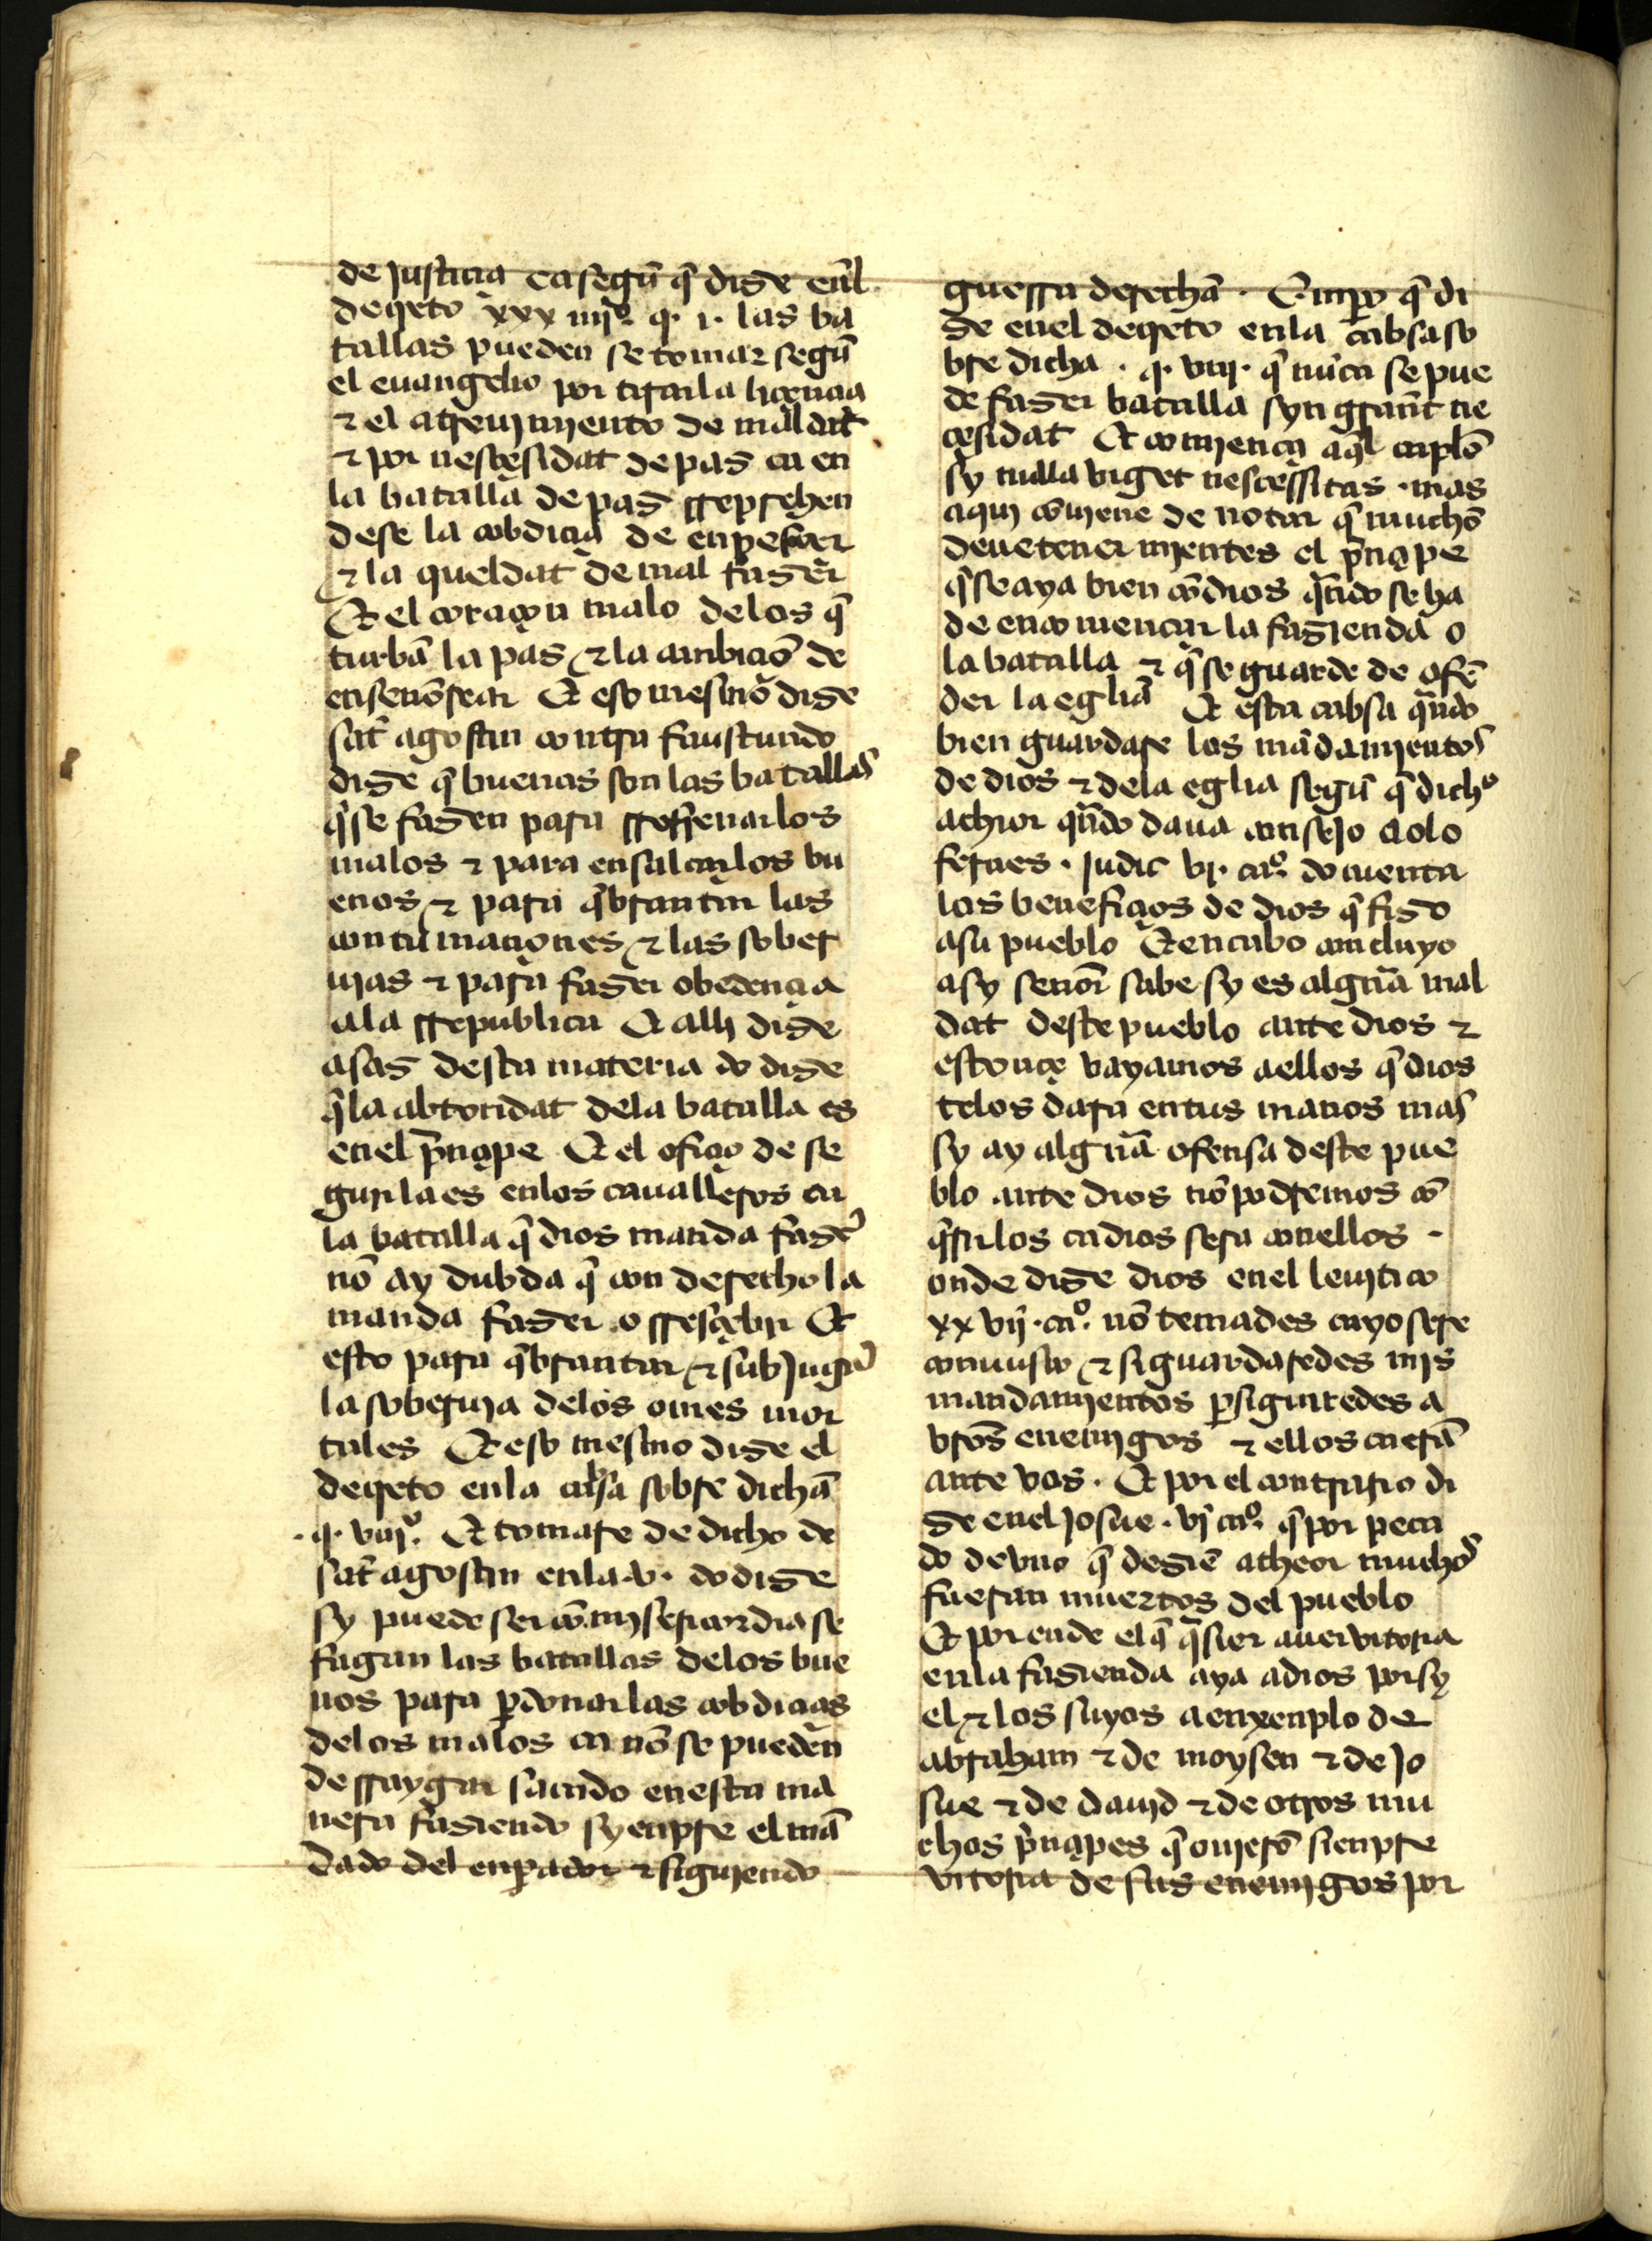 de justiçia ca segũ q̃ dize enl
decreto xxxiiijº. q. j. las ba
tallas pueden se tomar segũ
el euangelio por tirar la liçençia
⁊ el atreuimiento de maldat
⁊ por nesçesidat de paz ca en
la batalla de paz rreprehen
dese la cobdiçia de enpeesçer
⁊ la crueldat de mal fazer
Et el coraçon malo de los q̃
turbã la paz ⁊ la anbiçiõ de
enseñorear Et eso mesmo dize
sãt agostin contra faustũ do
dize q̃ buenas son las batallas
q̃ se fazen para rrefrenar los
malos ⁊ para ensalçar los bu
enos ⁊ para q̃brantar las
contumaçiones ⁊ las sober
uias ⁊ para fazer obedençia
a la rrepublica Et alli dize
asaz desta materia do dize
q̃ la abtoridat dela batalla es
enel prinçipe Et el ofiçio de se
guirla es enlos caualleros ca
la batalla q̃ dios manda fazer
nõ ay dubda q̃ con derecho la
manda fazer o rresçebir Et
esto para q̃brantar ⁊ subjugar
la soberuia delos omes mor
tales Et eso mesmo dize el
decreto enla cabsa sobre dichã
. q. viijº. Et tomase de dicho de
sãt agostin enla .v. do dize
sy puede ser cõ misericordia se
fagan las batallas delos bue
nos para p̃donar las cobdiçias
delos malos ca nõ se pueden
desraygar saluo en esta ma
nera faziendo syenpre el mã
dado del enp̃ador ⁊ siguiendo
guerra derechã. Enp̃o q̃ di
ze enel decreto enla cabsa so
bre dicha . q. viij. q̃ nũca se pue
de fazer batalla syn grant ne
çesidat Et comiença aq̃l capłō
sy nulla viget nesçessitas . mas
aqui cõuiene de notar q̃ muchõ
deue tener mientes el prinçipe
q̃ se aya bien cõ dios q̃ndo se ha
de encomençar la fazienda o
la batalla ⁊ q̃ se guarde de ofẽ
der la eglia Et esta cabsa q̃ndo
bien guardare los mãdamientos
de dios ⁊ dela eglia segũ q̃ dicho
achior q̃ndo daua consejo a olo
fernes . judic vj. caº. do cuenta
los benefiçios de dios q̃ fizo
a su pueblo Et en cabo concluyo
asy señor sabe sy es algũa mal
dat deste pueblo ante dios ⁊
estonçe vayamos a ellos q̃ dios
telos dara en tus manos mas
sy ay algũa ofensa deste pue
blo ante dios nõ podremos cõ
q̃rulos ca dios sera conellos .
onde dize dios enel leuitico
xxvij. caº. nõ temades ca yo sere
conuusco ⁊ si guardaredes mis
mandamientos p̃siguiredes a
vr̃os enemigos ⁊ ellos caerã
ante vos . Et por el contrario di
ze enel josue . vij caº. q̃ por peca
do de vno q̃ dezien acheor muchos
fueran muertos del pueblo
Et por ende el q̃ q̃sier auer vitoria
enla fazienda aya a dios por sy
el ⁊ los suyos a enxenplo de
abraham ⁊ de moysen ⁊ de jo
sue ⁊ de dauid ⁊ de otros mu
chos prinçipes q̃ ouierõ sienpre
vitoria de sus enemigos por